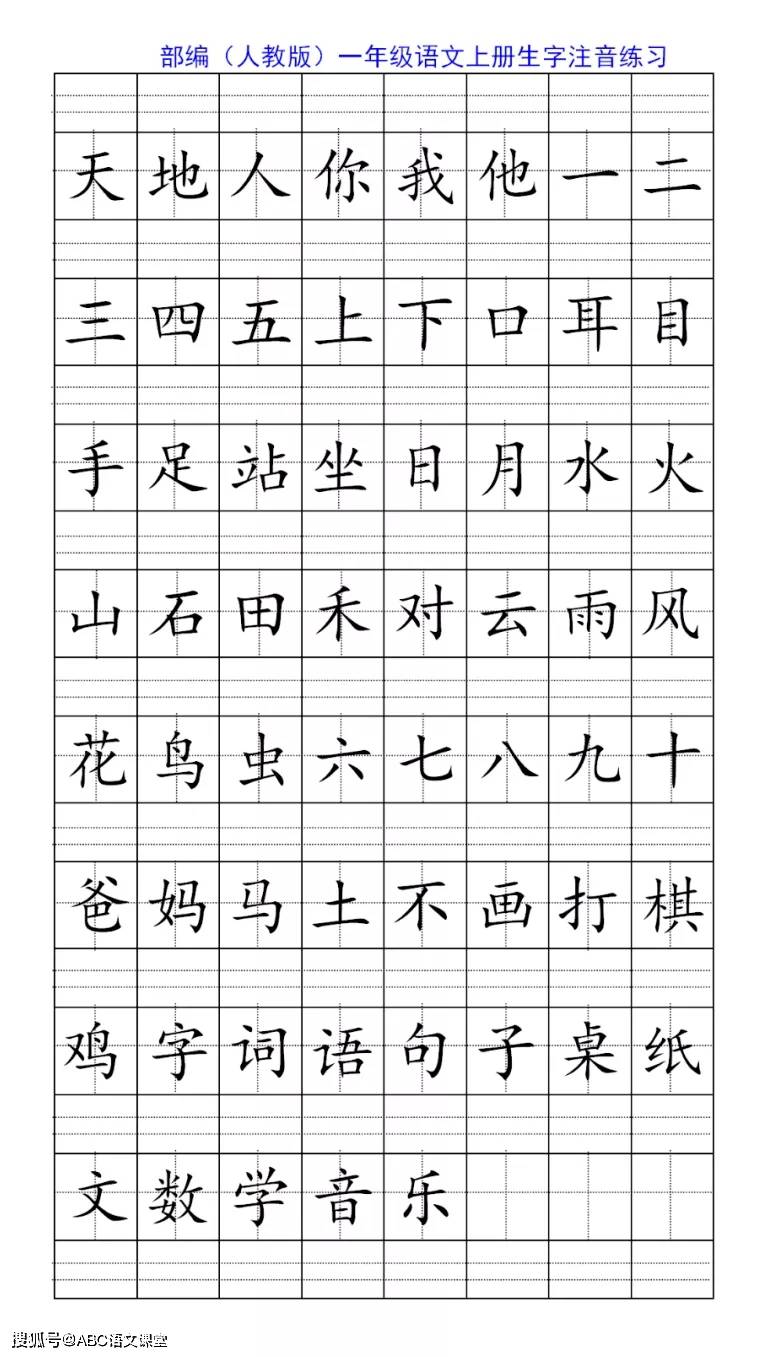 部编（人教版）一年级语文上册生字注音练习
天地人你我他一二
三四五上下口耳目
手足站坐日月水火
山石田禾对云雨风
花鸟虫六七八九十
爸妈马土不画打棋
鸡字词语句子桌纸
文数学音乐
搜狐号@ABC语文课堂